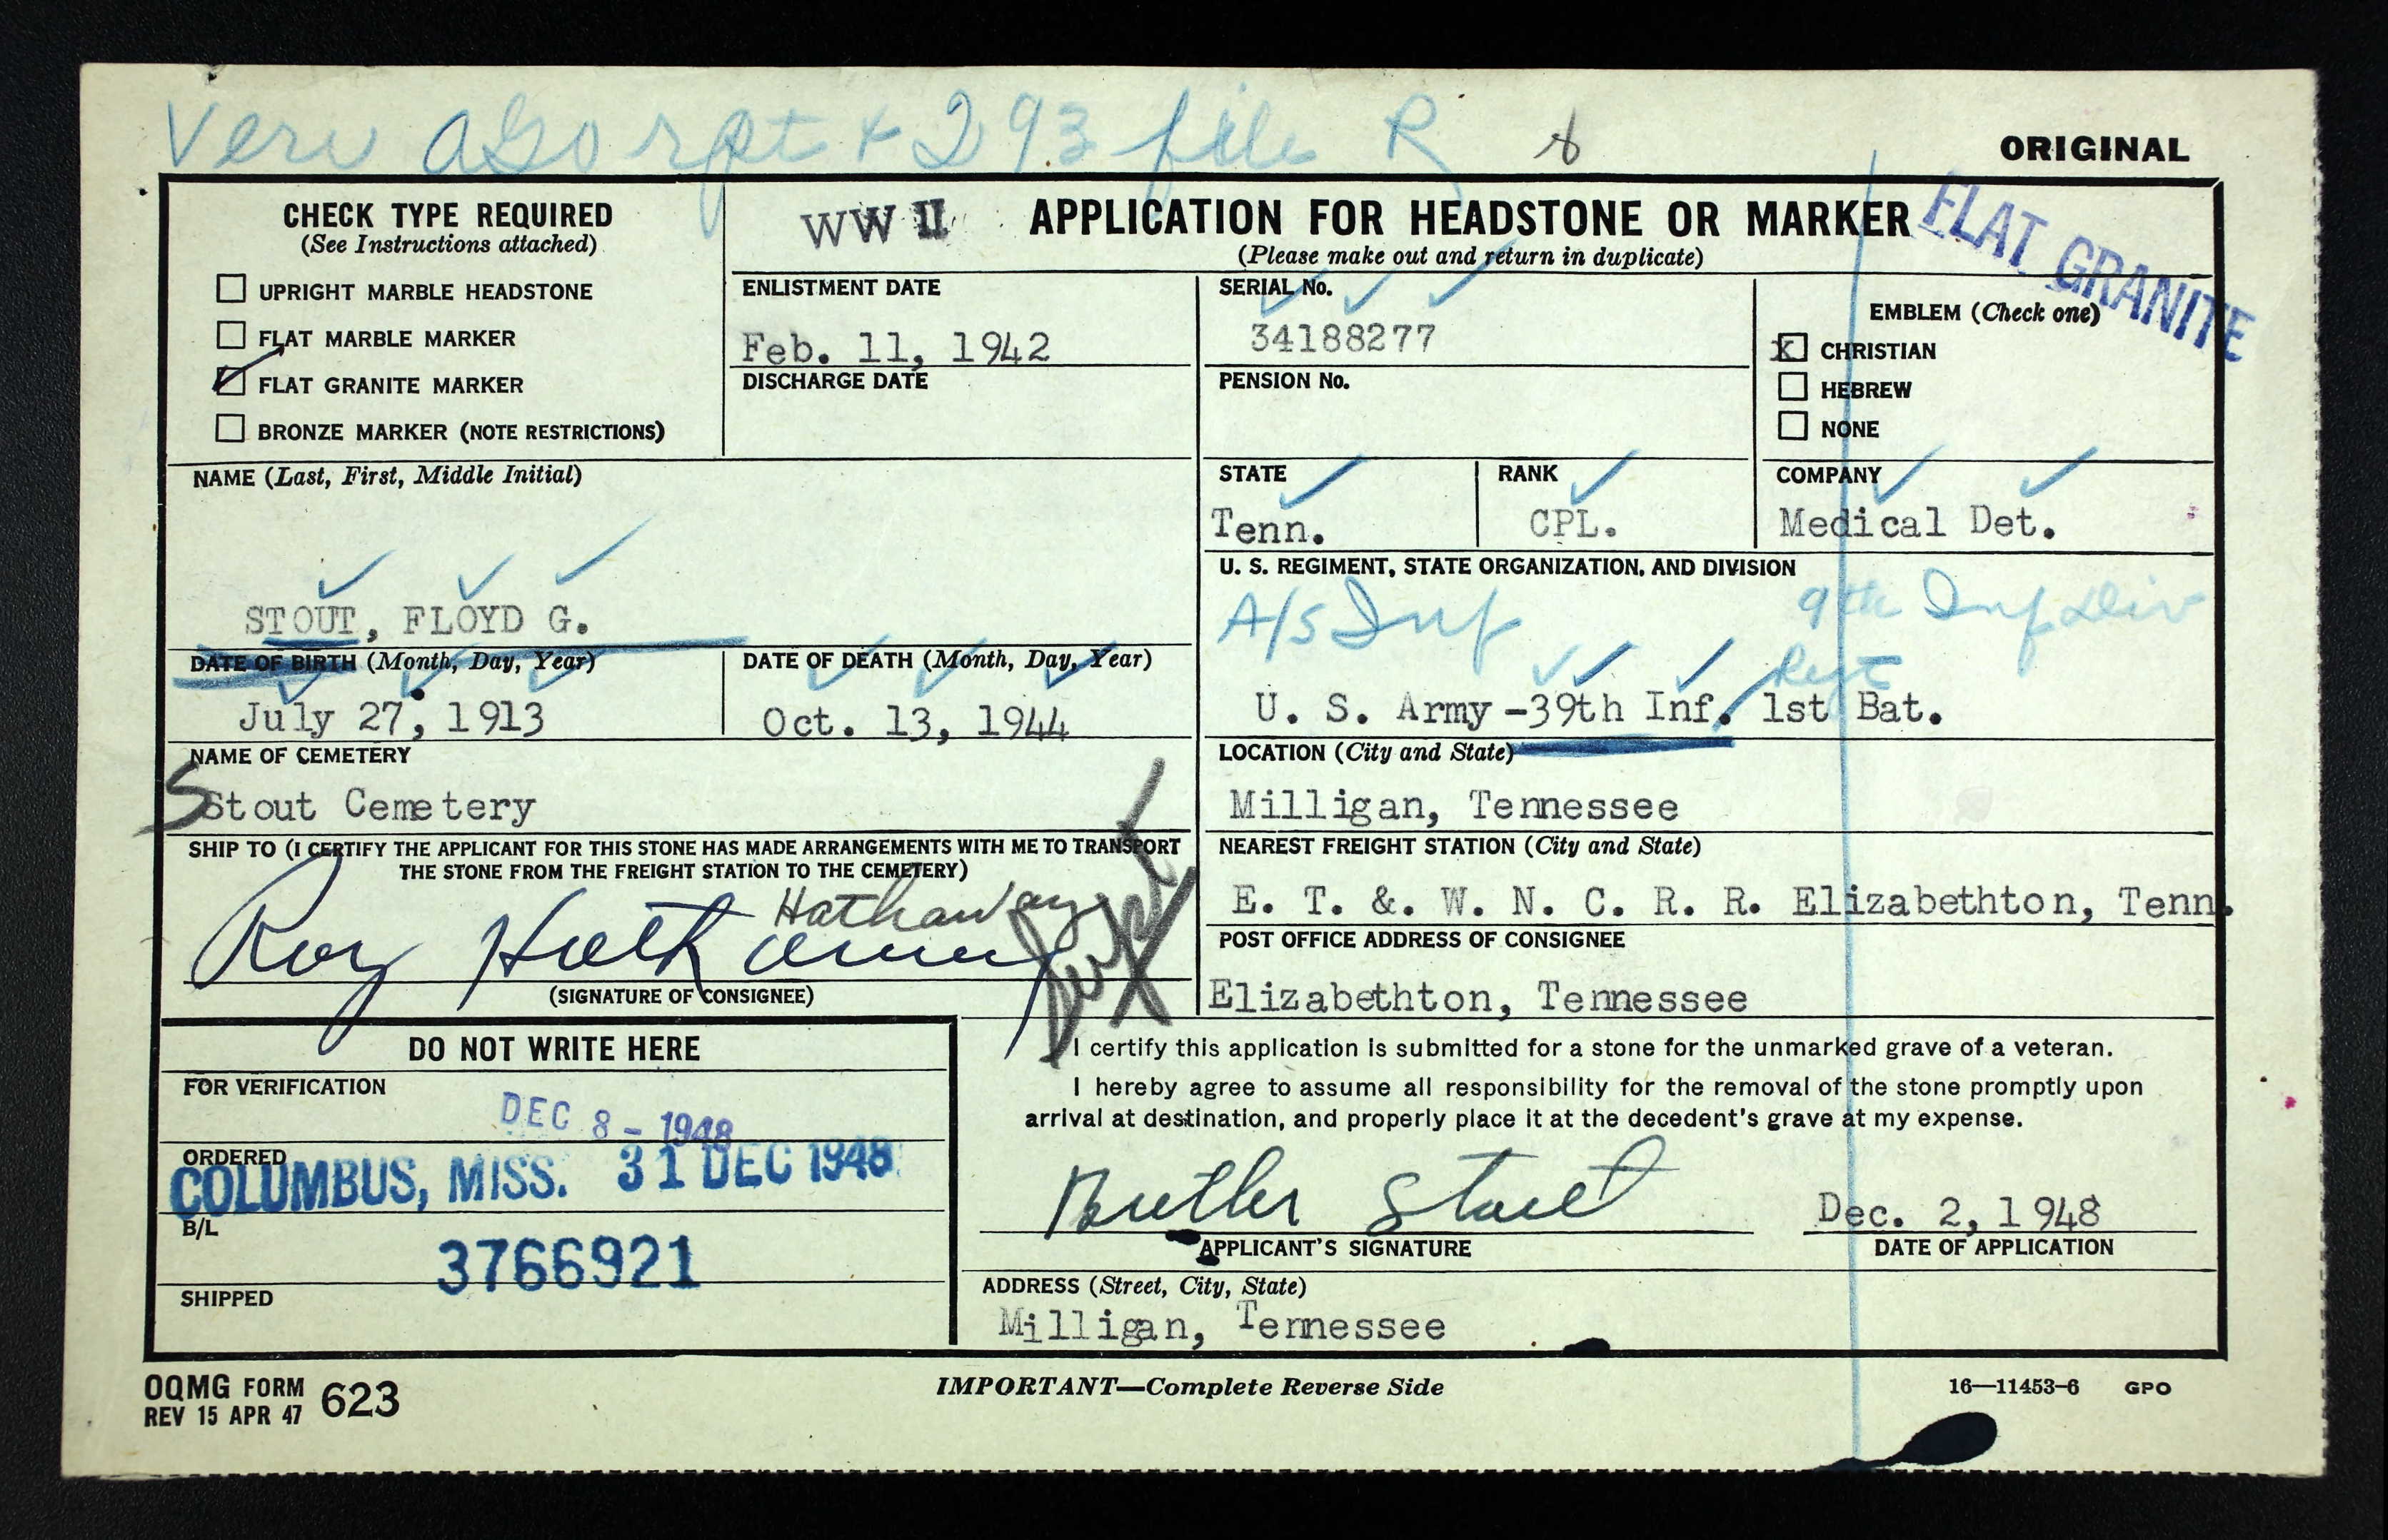 Veri AGO rpt + 293 file R
ORIGINAL
CHECK TYPE REQUIRED
(See Instructions attached)
UPRIGHT MARBLE HEADSTONE
FLAT MARBLE MARKER
FLAT GRANITE MARKER
BRONZE MARKER (NOTE RESTRICTIONS)
WW II
APPLICATION FOR HEADSTONE OR MARKER
(Please make out and return in duplicate)
FLAT GRANITE
ENLISTMENT DATE
Feb. 11, 1942
DISCHARGE DATE
SERIAL No.
34188277
PENSION No.
EMBLEM (Check one)
X CHRISTIAN
HEBREW
NONE
NAME (Last, First, Middle Initial)
STOUT, FLOYD G.
STATE
Tenn.
RANK
CPL.
COMPANY
Medical Det.
U. S. REGIMENT, STATE ORGANIZATION, AND DIVISION
A/S Inf 9th Inf Div
Regt
U. S. Army-39th Inf. 1st Bat.
DATE OF BIRTH (Month, Day, Year)
July 27, 1913
DATE OF DEATH (Month, Day, Year)
Oct. 13, 1944
NAME OF CEMETERY
S Stout Cemetery
LOCATION (City and State)
Milligan, Tennessee
SHIP TO (I CERTIFY THE APPLICANT FOR THIS STONE HAS MADE ARRANGEMENTS WITH ME TO TRANSPORT
THE STONE FROM THE FREIGHT STATION TO THE CEMETERY)
Hathaway
Roy Hathaway
(SIGNATURE OF CONSIGNEE)
NEAREST FREIGHT STATION (City and State)
E. T. &. W. N. C. R. R. Elizabethton, Tenn.
POST OFFICE ADDRESS OF CONSIGNEE
Elizabethton, Tennessee
DO NOT WRITE HERE
FOR VERIFICATION
DEC 8 - 1948
ORDERED
COLUMBUS, MISS. 31 DEC 1948
B/L
3766921
SHIPPED
I certify this application is submitted for a stone for the unmarked grave of a veteran.
I hereby agree to assume all responsibility for the removal of the stone promptly upon
arrival at destination, and properly place it at the decedent's grave at my expense.
Butler Stout
APPLICANT'S SIGNATURE
Dec. 2, 1948
DATE OF APPLICATION
ADDRESS (Street, City, State)
Milligan, Tennessee
OQMG FORM 623
REV 15 APR 47
IMPORTANT—Complete Reverse Side
16—11453-6 GPO